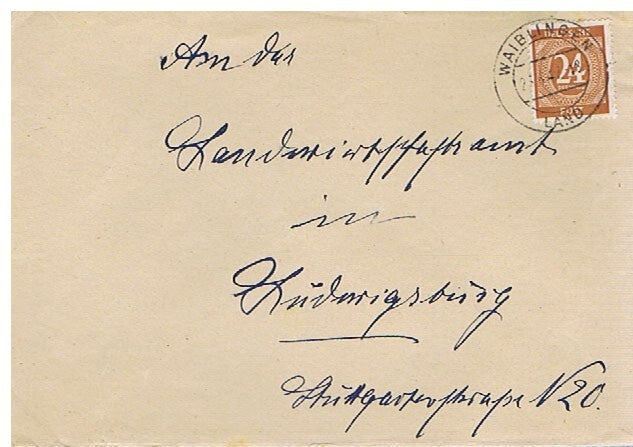 An das
Landwirtschaftsamt
in
Ludwigsburg
Stuttgarterstraße N 20.
WAIBLINGEN
LAND
DEUTSCHE
24